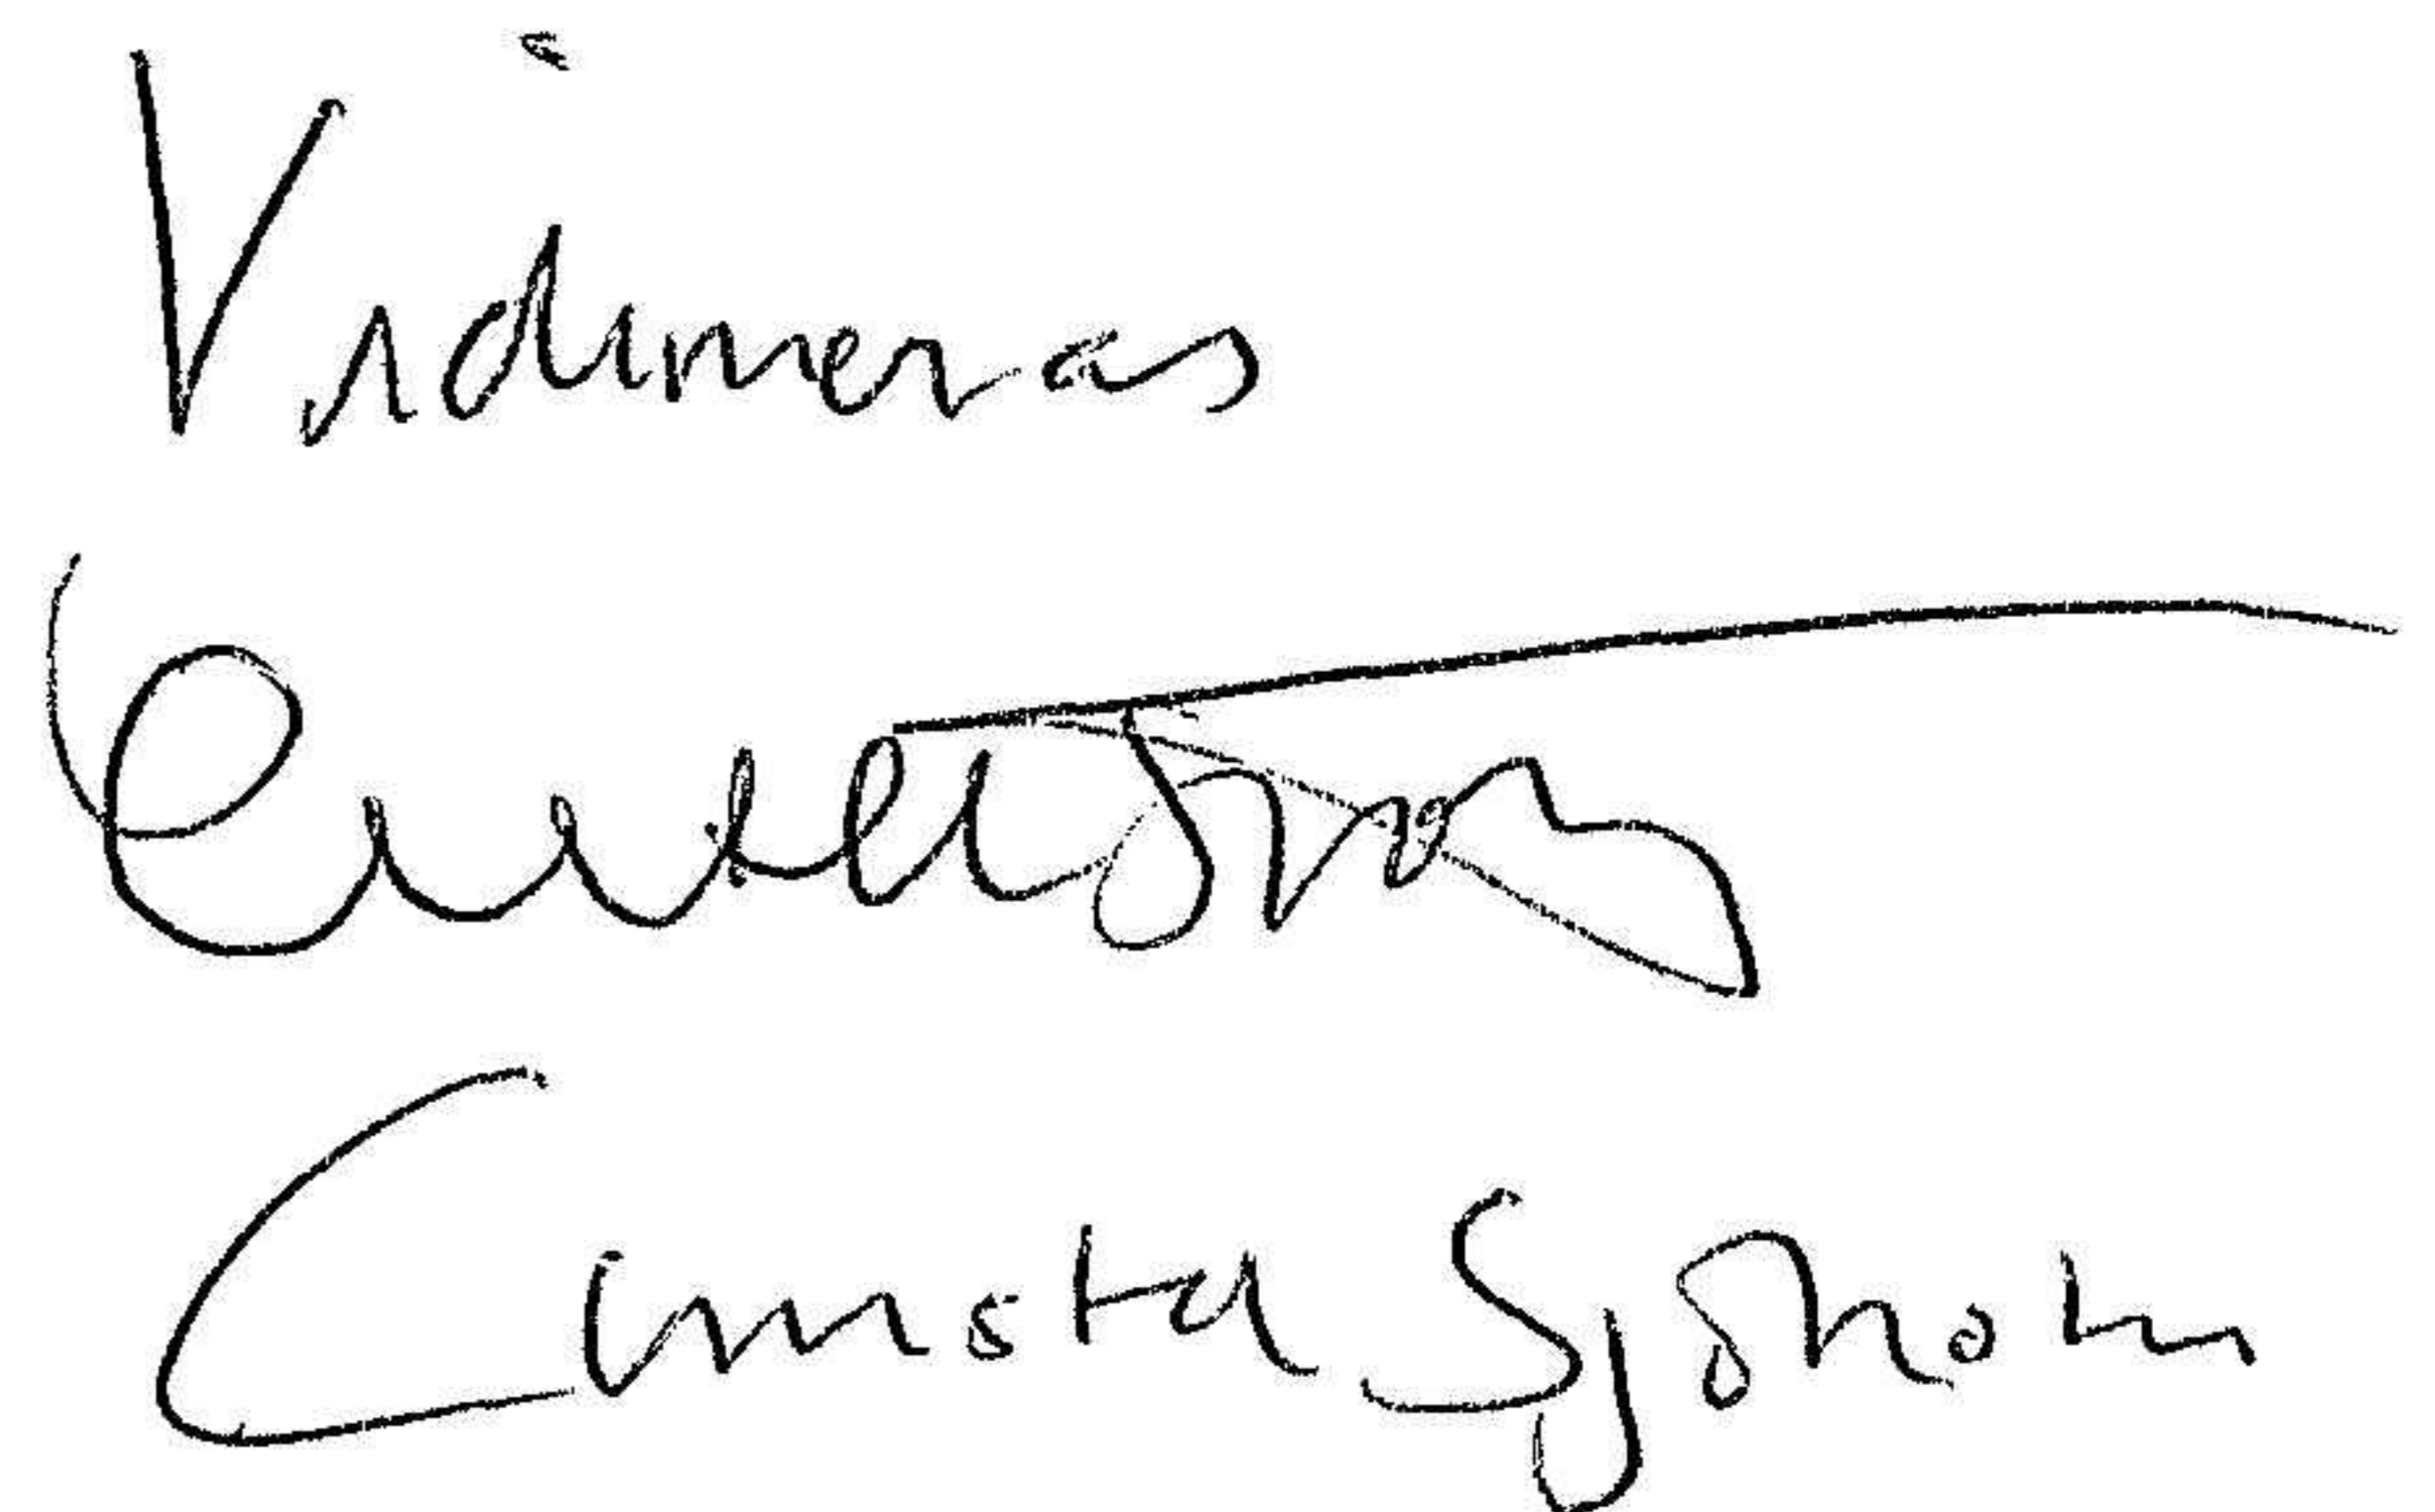 Vidimeras
Christa Sjöholm